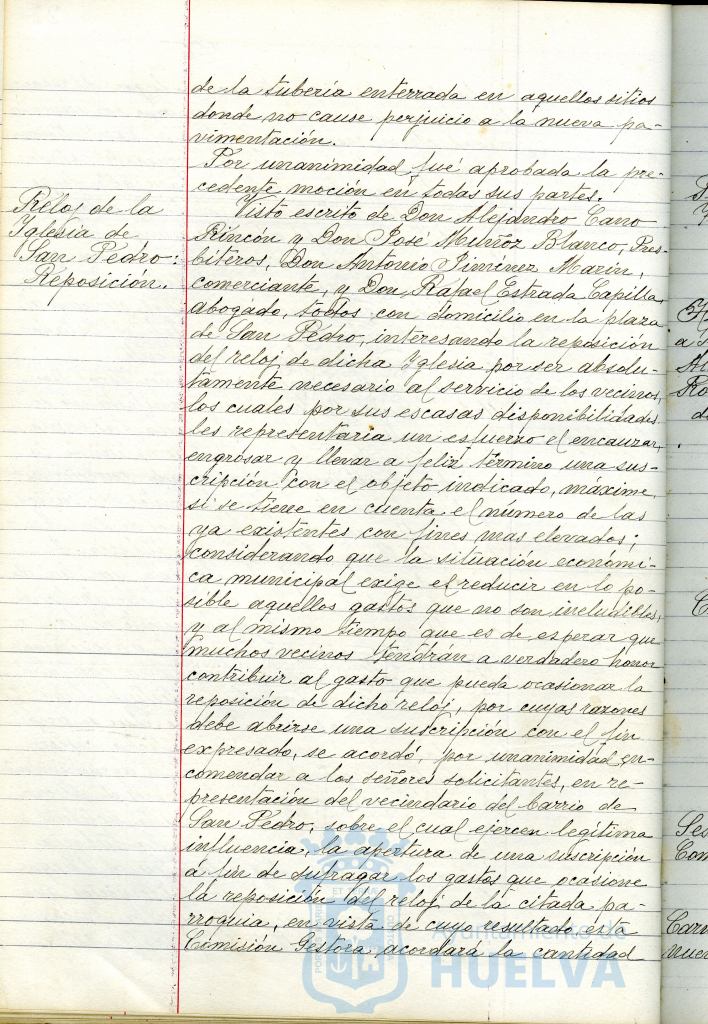 de la tubería enterrada en aquellos sitios
donde no cause perjuicio a la nueva pa-
vimentación.
Por unanimidad fué aprobada la pre-
cedente moción en todas sus partes.
Reloj de la
Iglesia de
San Pedro:
Reposición.
Visto escrito de Don Alejandro Cano
Rincón y Don José Muñoz Blanco, Pres-
bíteros, Don Antonio Jiménez Marín,
comerciante, y Don Rafael Estrada Capilla,
abogado, todos con domicilio en la plaza
de San Pedro, interesando la reposición
del reloj de dicha Iglesia por ser absolu-
tamente necesario al servicio de los vecinos,
los cuales por sus escasas disponibilidades
les representaría un esfuerzo el encauzar,
engrosar y llevar a feliz término una sus-
cripción con el objeto indicado, máxime
si se tiene en cuenta el número de las
ya existentes con fines mas elevados;
considerando que la situación económi-
ca municipal exige el reducir en lo po-
sible aquellos gastos que no son ineludibles,
y al mismo tiempo que es de esperar que
muchos vecinos tendrán a verdadero honor
contribuir al gasto que pueda ocasionar la
reposición de dicho reloj, por cuyas razones
debe abrirse una suscripción con el fin
expresado, se acordó, por unanimidad en-
comendar a los señores solicitantes, en re-
presentación del vecindario del barrio de
San Pedro, sobre el cual ejercen legítima
influencia, la apertura de una suscripción
a fin de sufragar los gastos que ocasione
la reposición del reloj de la citada pa-
rroquia, en vista de cuyo resultado esta
Comisión Gestora acordará la cantidad
Ayuntamiento de
HUELVA